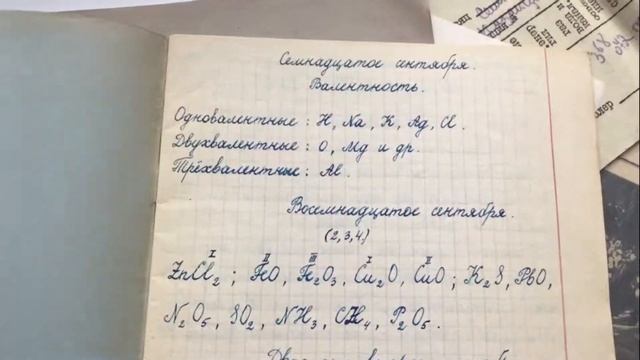 Семнадцатое сентября.
Валентность.
Одновалентные: H, Na, K, Ag, Cl.
Двухвалентные: O, Mg и др.
Трёхвалентные: Al.
Восемнадцатое сентября.
(2,3,4)
I II III I II
ZnCl₂; FeO, Fe₂O₃, Cu₂O, CuO; K₂S, PbO,
N₂O₅, SO₂, NH₃, CH₄, P₂O₅.